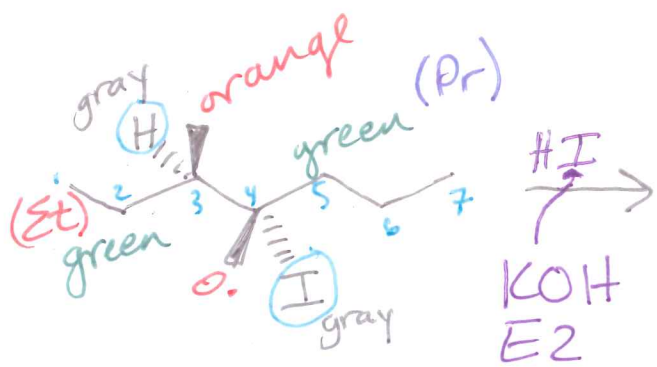 gray
orange
(Pr)
H
green
HI
1
2
3
4
5
6
7
(Et)
green
O.
I
gray
KOH
E2